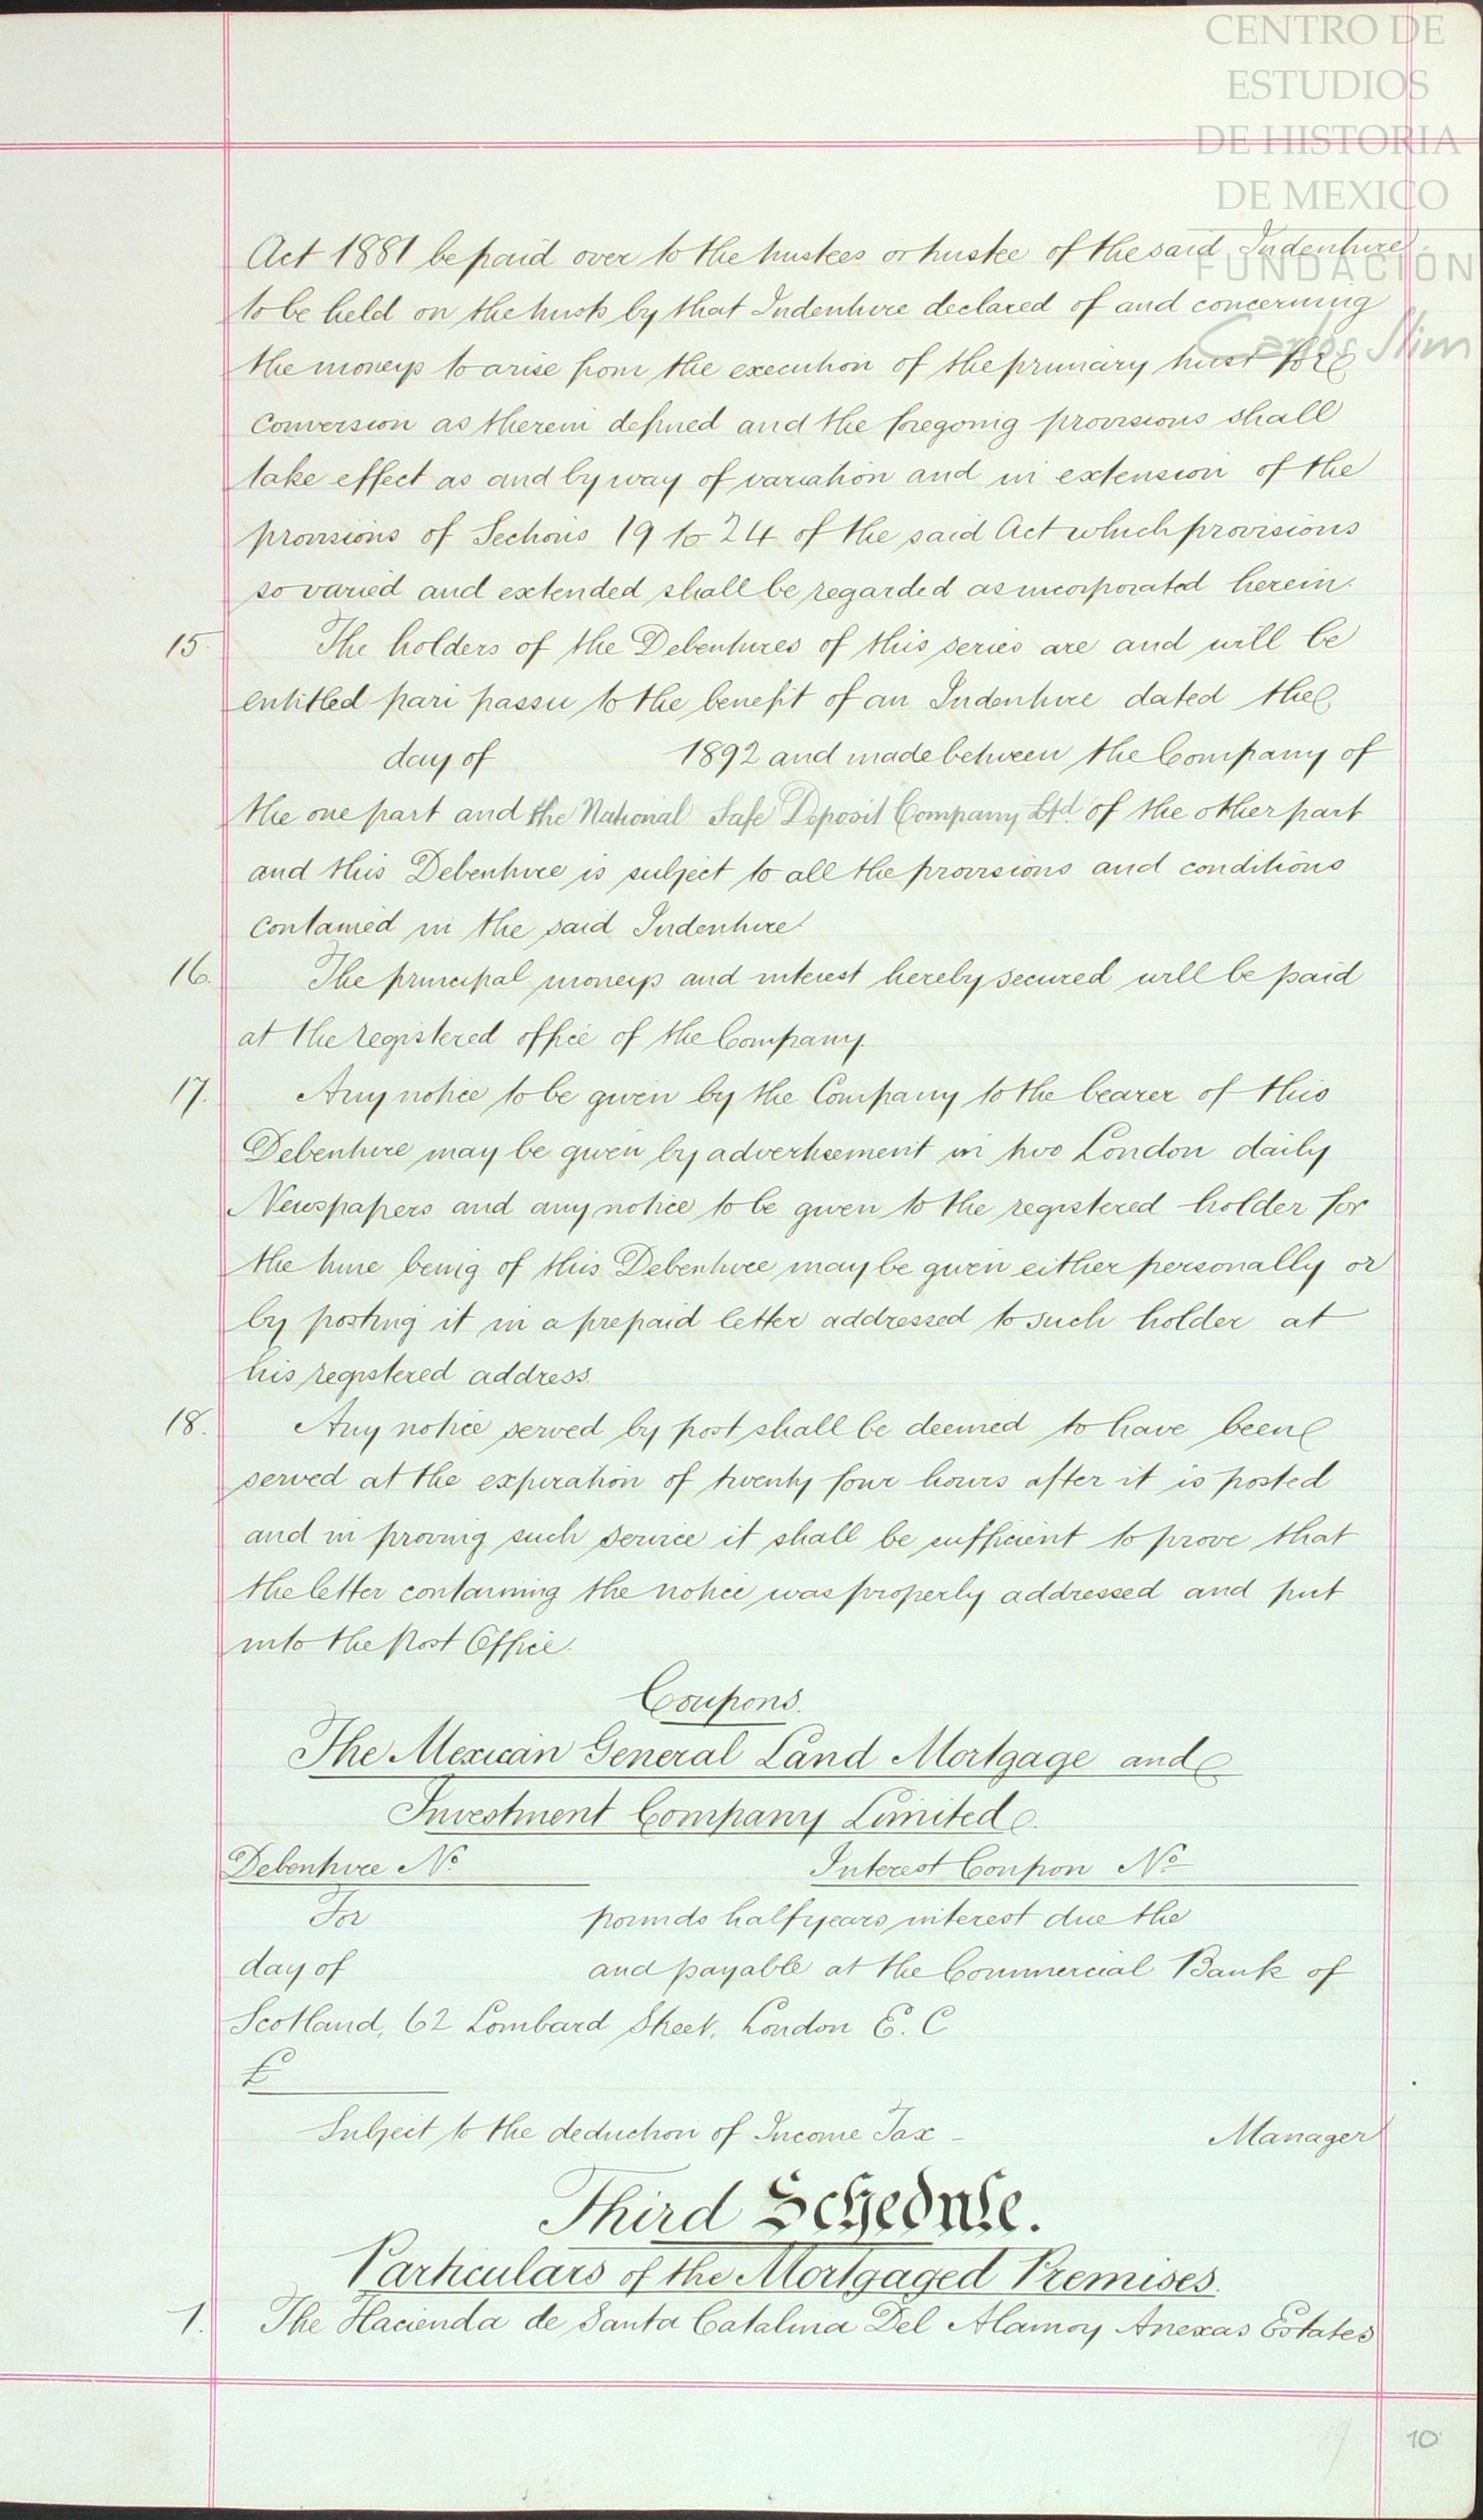 CENTRO DE
ESTUDIOS
DE HISTORIA
DE MEXICO
FUNDACIÓN
Carlos Slim
Act 1881 be paid over to the trustees or trustee of the said Indenture
to be held on the trusts by that Indenture declared of and concerning
the moneys to arise from the execution of the primary trust for
conversion as therein defined and the foregoing provisions shall
take effect as and by way of variation and in extension of the
provisions of Sections 19 to 24 of the said Act which provisions
so varied and extended shall be regarded as incorporated herein.
15. The holders of the Debentures of this series are and will be
entitled pari passu to the benefit of an Indenture dated the
day of 1892 and made between the Company of
the one part and the National Safe Deposit Company Ltd. of the other part
and this Debenture is subject to all the provisions and conditions
contained in the said Indenture
16. The principal moneys and interest hereby secured will be paid
at the registered office of the Company.
17. Any notice to be given by the Company to the bearer of this
Debenture may be given by advertisement in two London daily
Newspapers and any notice to be given to the registered holder for
the time being of this Debenture may be given either personally or
by posting it in a prepaid letter addressed to such holder at
his registered address.
18. Any notice served by post shall be deemed to have been
served at the expiration of twenty four hours after it is posted
and in proving such service it shall be sufficient to prove that
the letter containing the notice was properly addressed and put
into the Post Office.
Coupons.
The Mexican General Land Mortgage and
Investment Company Limited.
Debenture No. Interest Coupon No.
For pounds half years interest due the
day of and payable at the Commercial Bank of
Scotland, 62 Lombard Street, London E. C
£
Subject to the deduction of Income Tax – Manager
Third Schedule.
Particulars of the Mortgaged Premises.
1. The Hacienda de Santa Catalina Del Alamo y Anexas Estates
10